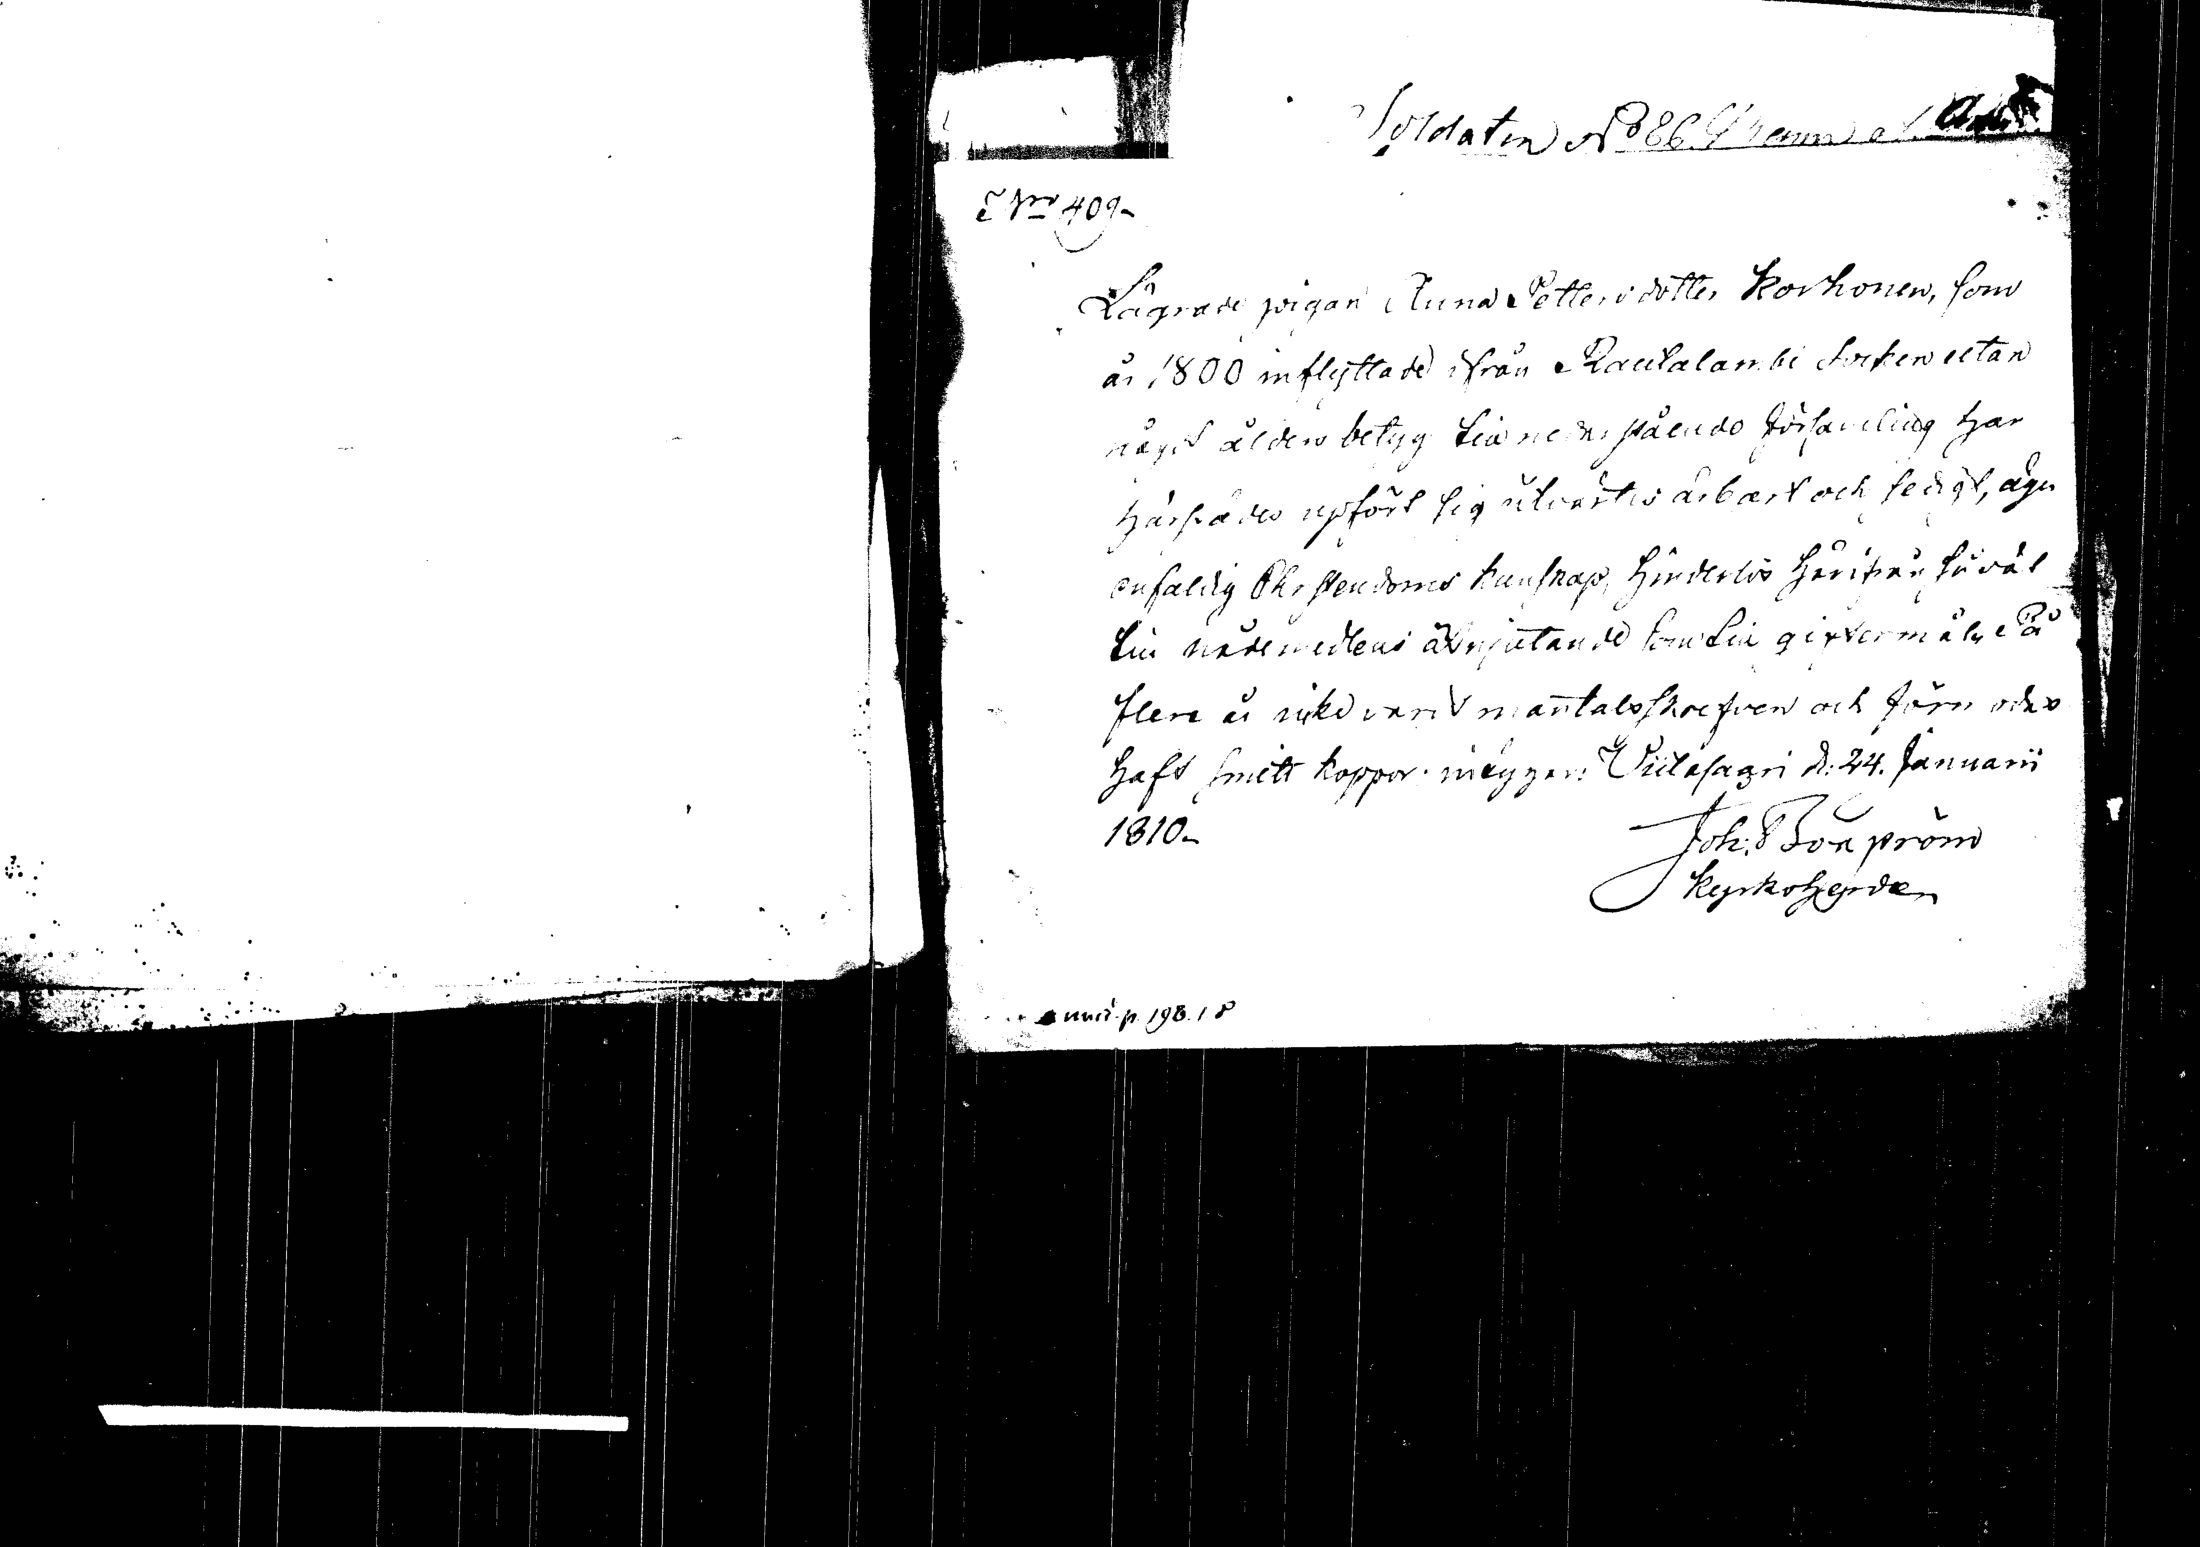 Soldaten No 86
No 409.
Lägrade pigan Anna Pettersdotter Korhonen, som
år 1800 inflyttade ifrån Rautalambi Socken utan
något ålders betyg til nedanstående församling har
härstädes upfört sig utvärtes ärbart och sedigt, äger
enfaldig Christendoms kunskap, hinderlös härifrån så väl
til nådemedlens åtnjutande som til giftermål, På
flere år icke varit mantalsskrefven och förmodes
haft smitt koppor intygar. Viitasaari d: 24. Januarii
1810.
Joh.
Kyrkoherde
p. 198.